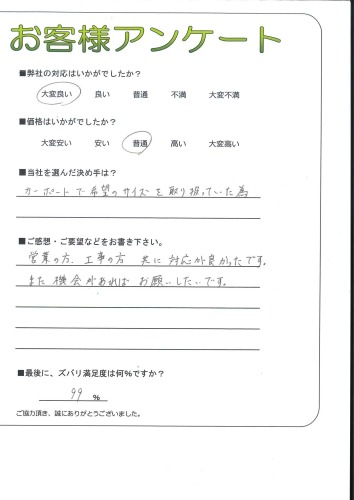 お客様アンケート
■弊社の対応はいかがでしたか？
大変良い 良い 普通 不満 大変不満
■価格はいかがでしたか？
大変安い 安い 普通 高い 大変高い
■当社を選んだ決め手は？
カーポートで希望のサイズを取り扱っていた為
■ご感想・ご要望などをお書き下さい。
営業の方、工事の方 共に対応が良かったです。
また機会があれば お願いしたいです。
■最後に、ズバリ満足度は何%ですか？
99 %
ご協力頂き、誠にありがとうございました。